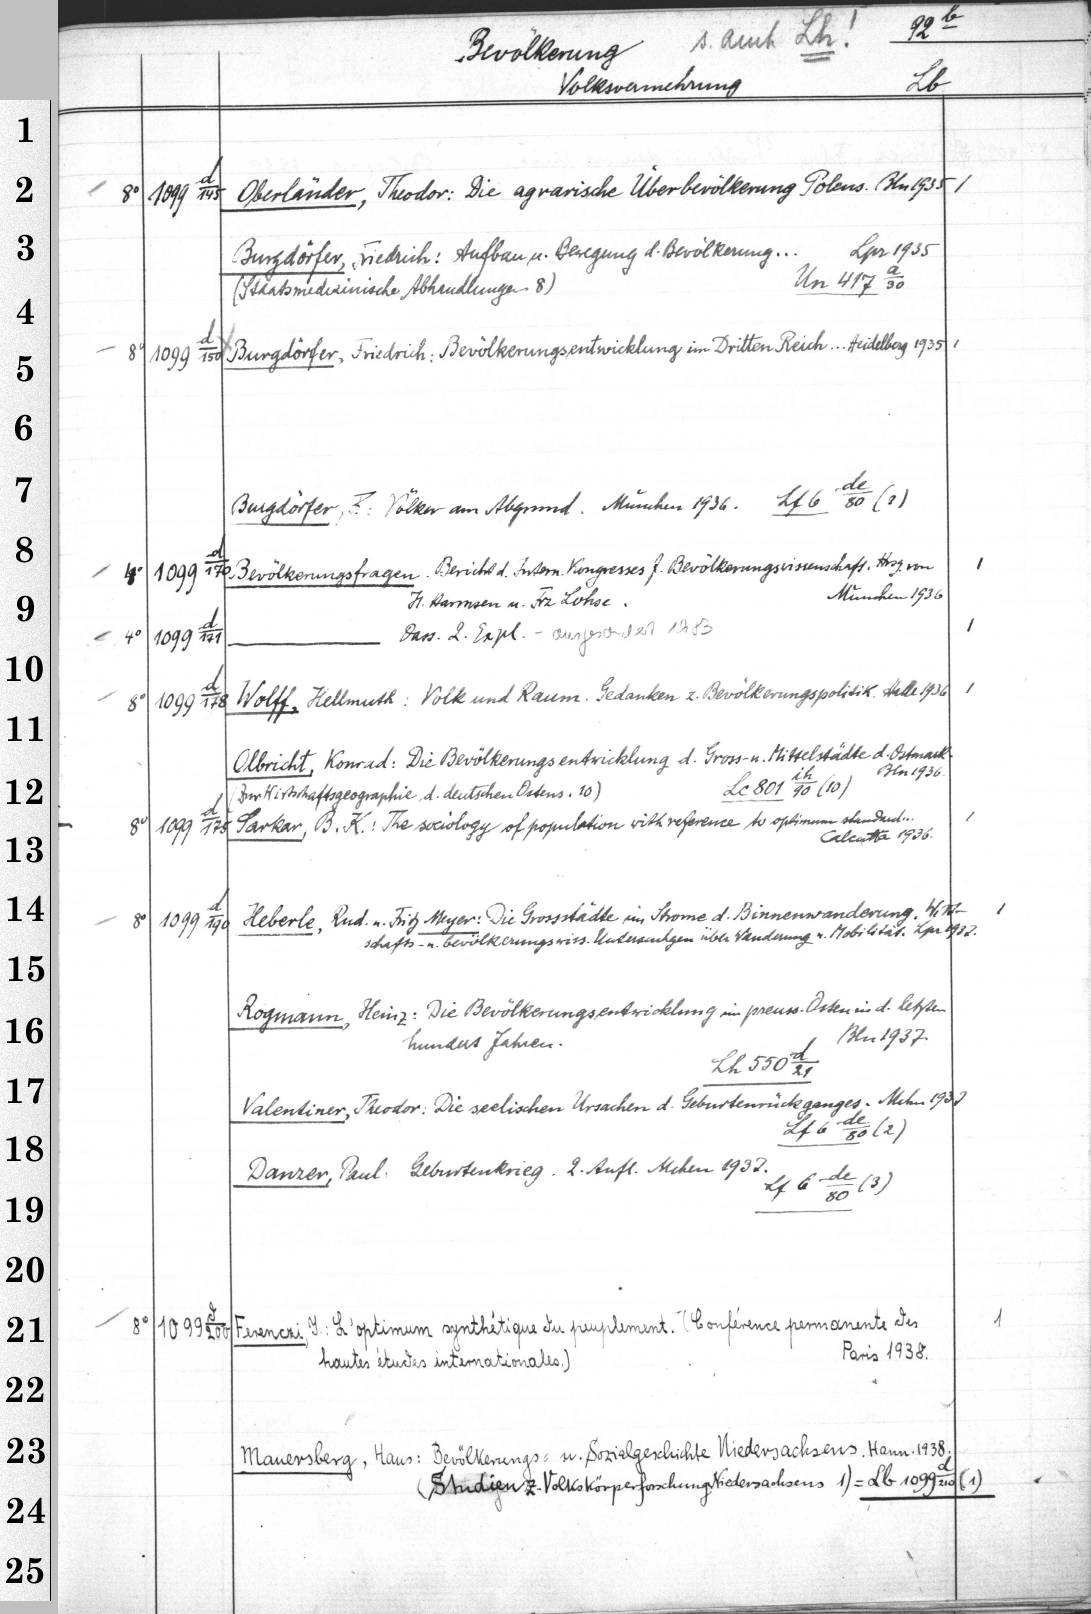 Bevölkerung s. auch Lh! 92 b
Volksvermehrung Lb
1
2 8° 1099 d/145 Oberländer, Theodor: Die agrarische Überbevölkerung Polens. Bln 1935 1
3 Burgdörfer, Friedrich: Aufbau u. Bewegung d. Bevölkerung... Lpz 1935
(Staatsmedizinische Abhandlungen 8) Un 417 a/30
4
8° 1099 d/150 Burgdörfer, Friedrich: Bevölkerungsentwicklung im Dritten Reich... Heidelberg 1935 1
5
6
7 Burgdörfer, F.: Völker am Abgrund. München 1936. Lf 6 de/80 (1)
8 4° 1099 d/170 Bevölkerungsfragen. Bericht d. Intern. Kongresses f. Bevölkerungswissenschaft. Hrsg. von 1
9 H. Harmsen u. Frz Lohse. München 1936
4° 1099 d/171 Dass. 2. Expl. - ausgesondert 1983 1
10 8° 1099 d/178 Wolff, Hellmuth: Volk und Raum. Gedanken z. Bevölkerungspolitik. Halle 1936 1
11 Olbricht, Konrad: Die Bevölkerungsentwicklung d. Gross- u. Mittelstädte d. Ostmark.
Bln 1936.
12 (Zur Wirtschaftsgeographie d. deutschen Ostens. 10) Lc 801 ih/90 (10)
8° 1099 d/175 Sarkar, B. K.: The sociology of population with reference to optimum standard... 1
13 Calcutta 1936.
14 8° 1099 d/190 Heberle, Rud. u. Fritz Meyer: Die Grossstädte im Strome d. Binnenwanderung. Wirt- 1
schafts- u. bevölkerungswiss. Untersuchgen über Wanderung u. Mobilität. Lpz 1937.
15
16 Rogmann, Heinz: Die Bevölkerungsentwicklung im preuss. Osten in d. letzten
hundert Jahren. Bln 1937.
Lh 550 d/21
17 Valentiner, Theodor: Die seelischen Ursachen d. Geburtenrückganges. Mchn 1937
18 Lf 6 de/80 (2)
Danzer, Paul: Geburtenkrieg. 2. Aufl. Mchen 1937.
19 Lf 6 de/80 (3)
20
21 8° 1099 d/200 Ferenczi, I.: L'optimum synthétique du peuplement. (Conférence permanente des 1
hautes études internationales.) Paris 1938.
22
23 Mauersberg, Hans: Bevölkerungs- u. Sozialgeschichte Niedersachsens. Hann. 1938.
(Studien z. Volkskörperforschung Niedersachsens 1) = Lb 1099 d/210 (1)
24
25